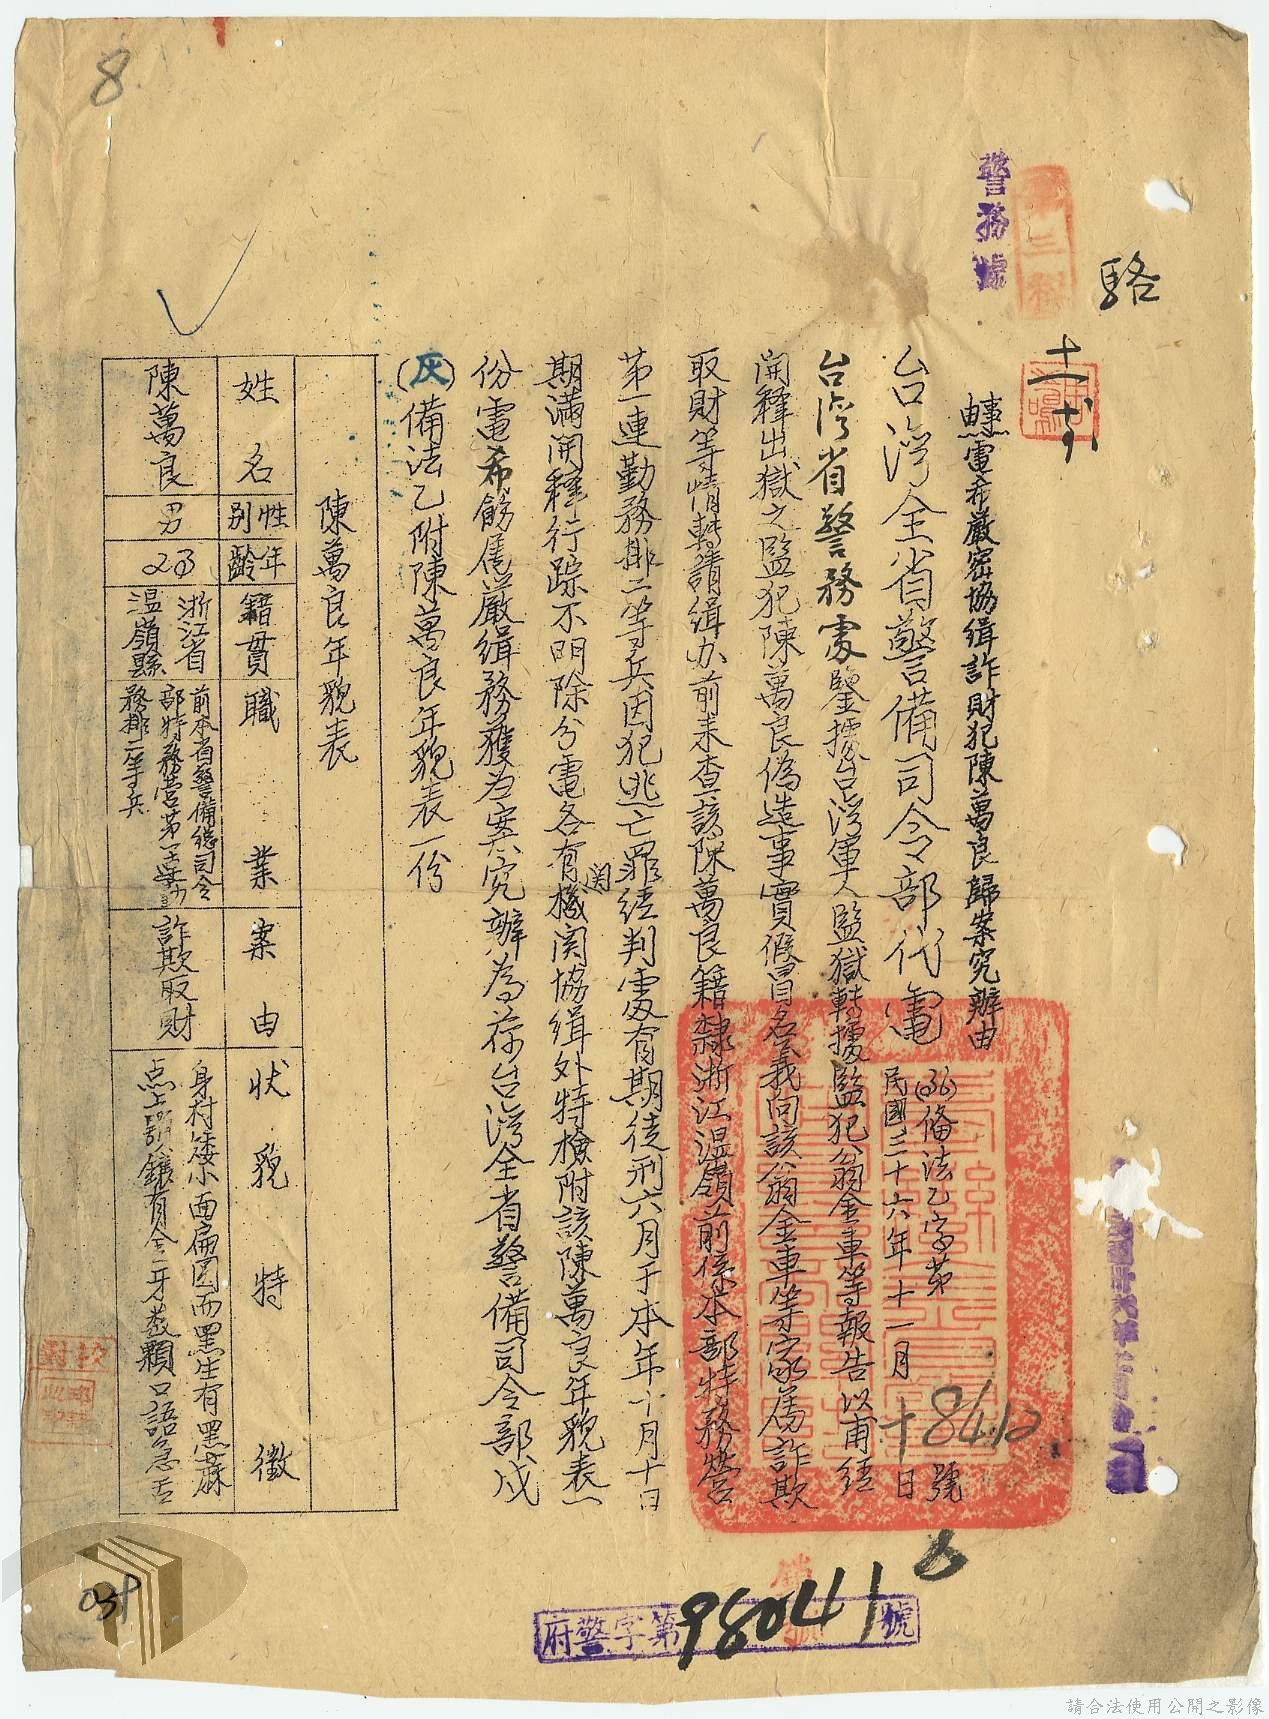 8
警務處
駱
十一
事由電希嚴密協緝詐財犯陳萬良歸案究辦由
台灣全省警備司令部代電
(36)備法乙字第 18412 號
民國三十六年十一月 十 日
台灣省警務處鑒據台灣軍人監獄轉據監犯翁金車等報告以甫經
開釋出獄之監犯陳萬良偽造事實假冒名義向該翁金車等家屬詐欺
取財等情轉請緝办前来查該陳萬良籍隸浙江温嶺前係本部特務營
第一連勤務排二等兵因犯逃亡罪経判處有期徒刑六月于本年十月十日
期滿開釋行踪不明除分電各有機関協緝外特檢附該陳萬良年貌表一
関
份電希飭屬嚴緝務獲为案究辦為荷台灣全省警備司令部戍
(灰)備法乙附陳萬良年貌表一份
陳萬良年貌表
姓名 性別 年齡 籍貫 職業 案由 狀貌特徵
陳萬良 男 23 浙江省温嶺縣 前本省警備總司令部特務營第一連勤務排二等兵 詐欺取財 身材矮小面扁圓而黑生有黑蔴点上顎鑲有金牙数顆口語急舌
校對
府警字第98041號
039
請合法使用公開之影像